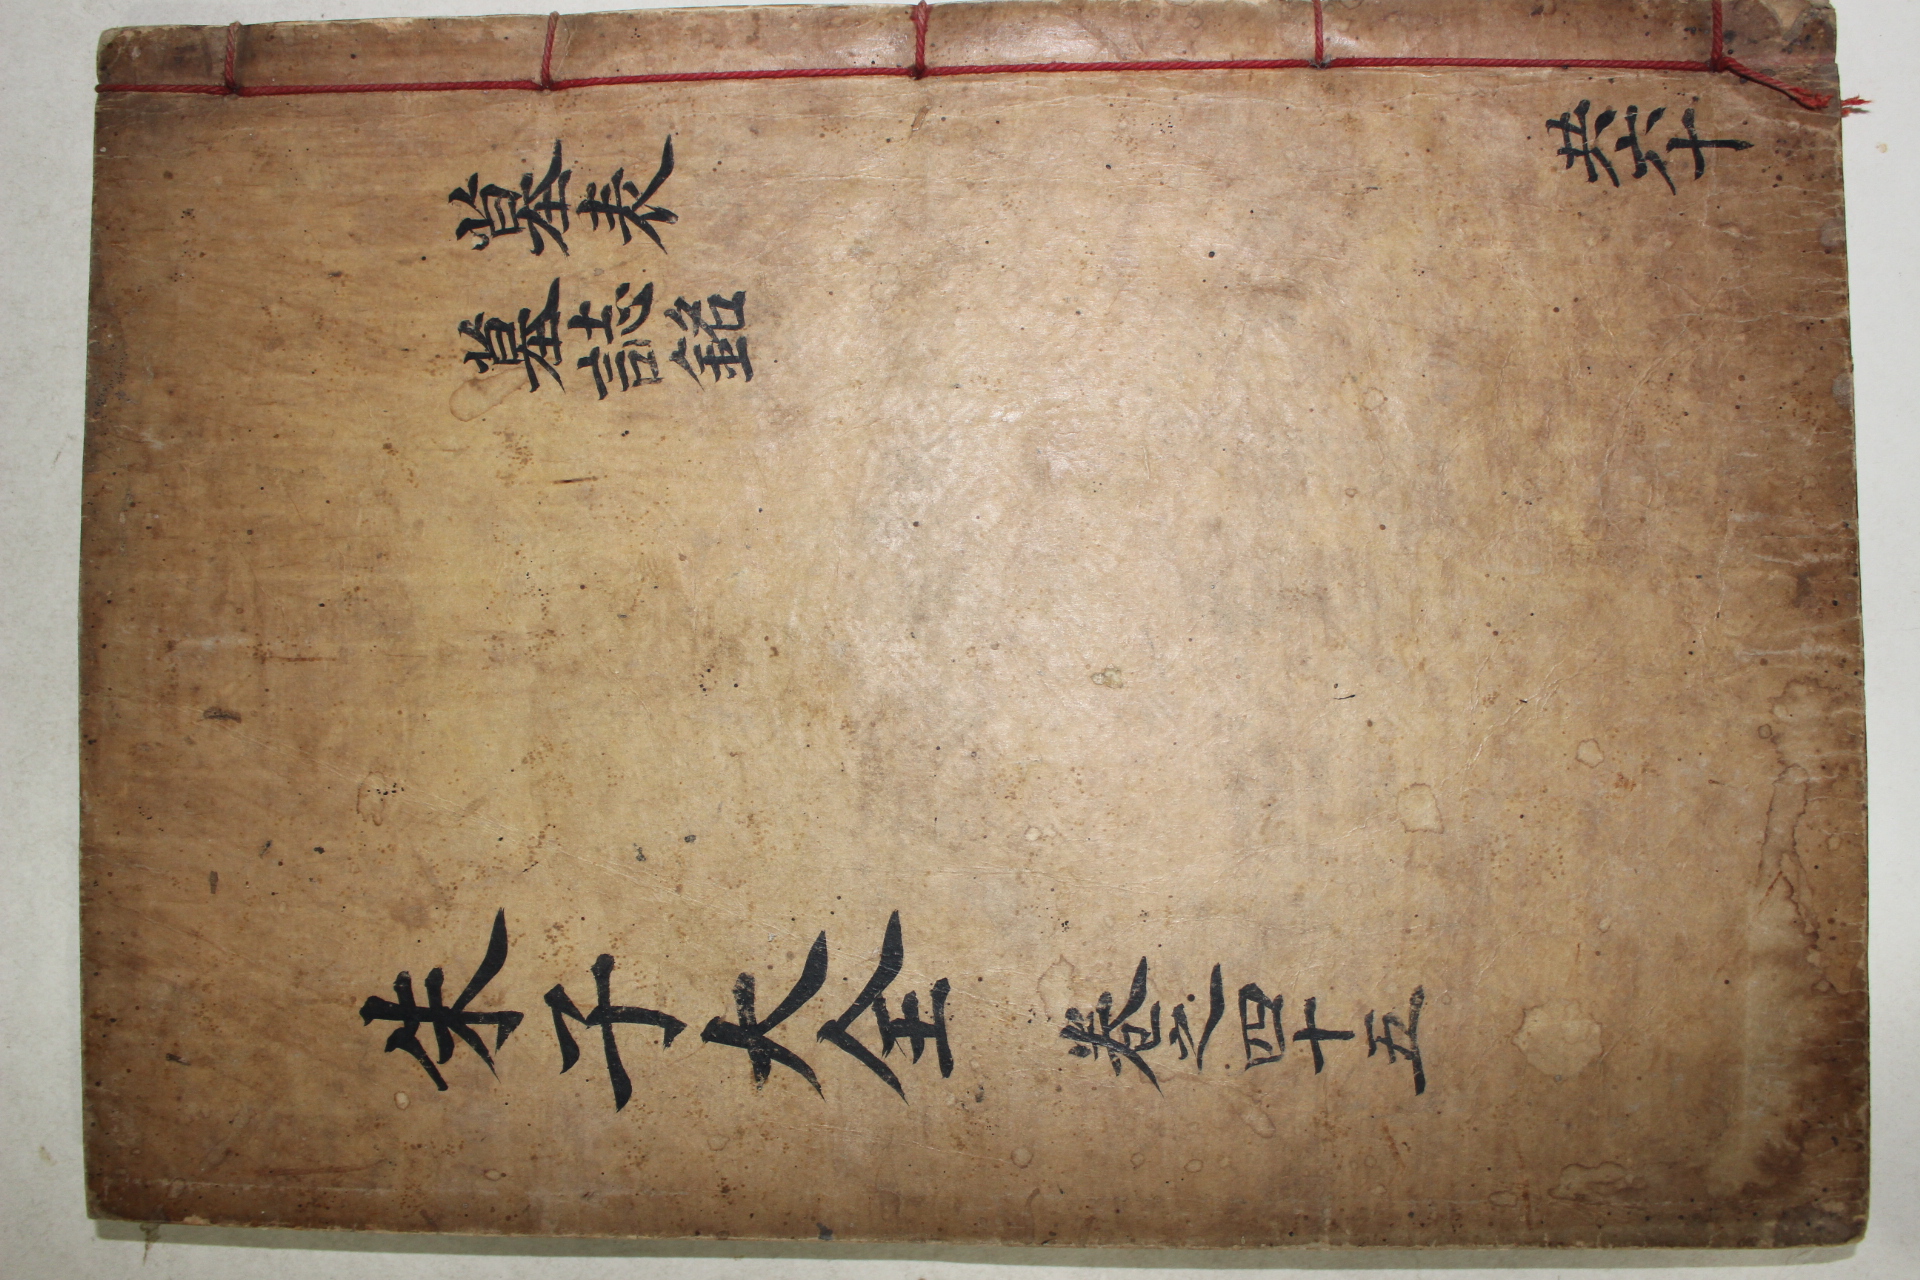 朱子大全 卷之四十五
墓表
墓誌銘
共六十